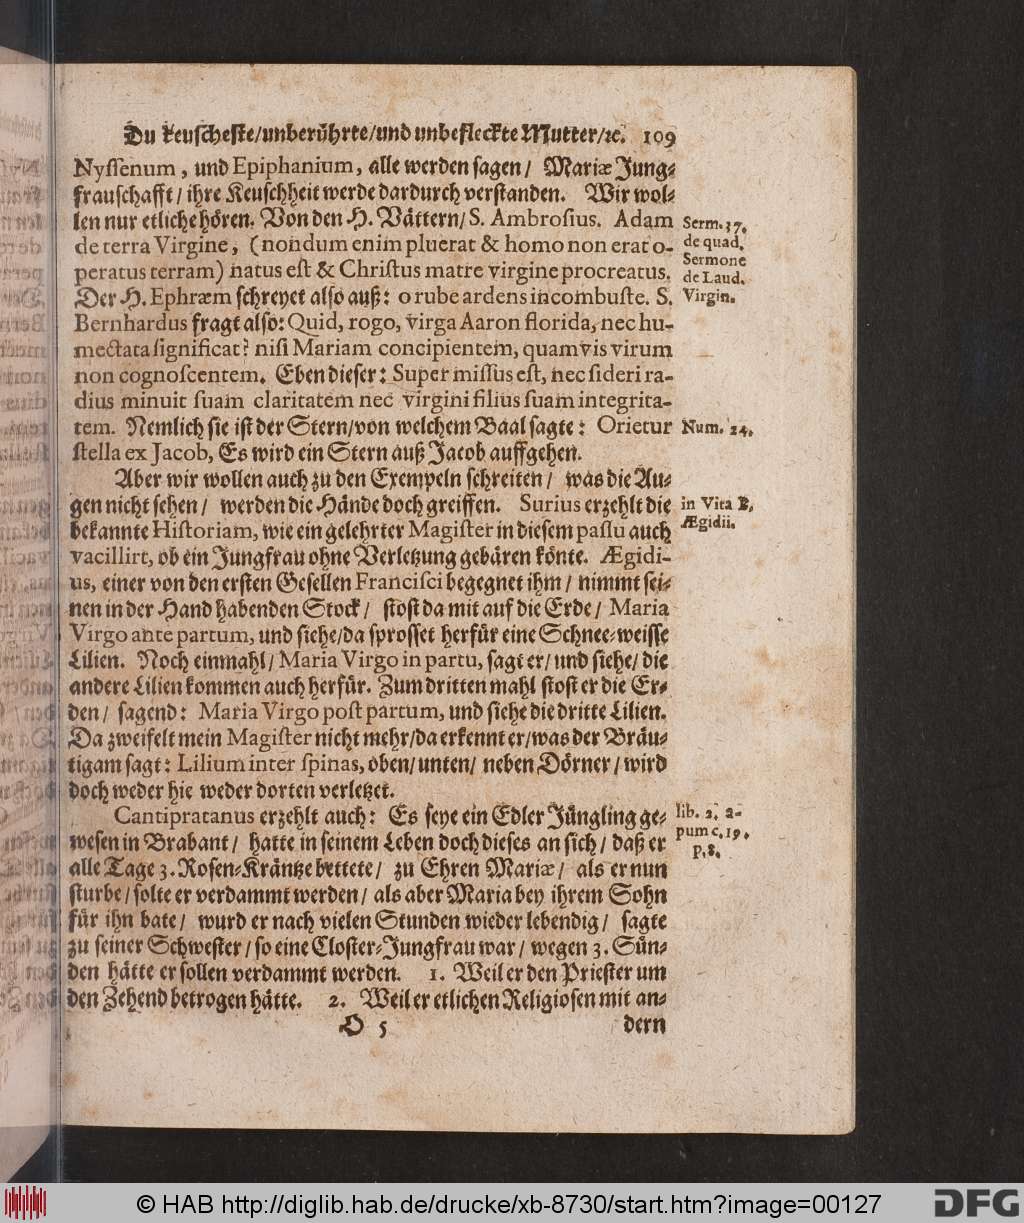 Du keuscheste/unberührte/und unbefleckte Mutter/ꝛc. 109
Nyssenum, und Epiphanium, alle werden sagen/ Mariæ Jung-
frauschafft/ ihre Keuschheit werde dardurch verstanden. Wir wol-
len nur etliche hören. Von den H. Vättern/ S. Ambrosius. Adam
de terra Virgine, (nondum enim pluerat & homo non erat o-
peratus terram) natus est & Christus matre virgine procreatus.
Der H. Ephræm schreyet also auß: o rube ardens incombuste. S.
Bernhardus fragt also: Quid, rogo, virga Aaron florida, nec hu-
mectata significat? nisi Mariam concipientem, quamvis virum
non cognoscentem. Eben dieser: Super missus est, nec sideri ra-
dius minuit suam claritatem nec virgini filius suam integrita-
tem. Nemlich sie ist der Stern/von welchem Baal sagte: Orietur
stella ex Jacob, Es wird ein Stern auß Jacob auffgehen.
Serm. 37.
de quad.
Sermone
de Laud.
Virgin.
Num. 24.
Aber wir wollen auch zu den Exempeln schreiten/ was die Au-
gen nicht sehen/ werden die Hände doch greiffen. Surius erzehlt die
bekannte Historiam, wie ein gelehrter Magister in diesem passu auch
vacillirt, ob ein Jungfrau ohne Verletzung gebären könte. Ægidi-
us, einer von den ersten Gesellen Francisci begegnet ihm/ nimmt sei-
nen in der Hand habenden Stock/ stost da mit auf die Erde/ Maria
Virgo ante partum, und siehe/da sprosset herfür eine Schnee-weisse
Lilien. Noch einmahl/ Maria Virgo in partu, sagt er/ und siehe/ die
andere Lilien kommen auch herfür. Zum dritten mahl stost er die Er-
den/ sagend: Maria Virgo post partum, und siehe die dritte Lilien.
Da zweifelt mein Magister nicht mehr/da erkennt er/was der Bräu-
tigam sagt: Lilium inter spinas, oben/unten/ neben Dörner/ wird
doch weder hie weder dorten verletzet.
in Vita B.
Ægidii.
Cantipratanus erzehlt auch: Es seye ein Edler Jüngling ge-
wesen in Brabant/ hatte in seinem Leben doch dieses an sich/ daß er
alle Tage 3. Rosen-Kräntze bettete/ zu Ehren Mariæ/ als er nun
sturbe/ solte er verdammt werden/ als aber Maria bey ihrem Sohn
für ihn bate/ wurd er nach vielen Stunden wieder lebendig/ sagte
zu seiner Schwester/ so eine Closter-Jungfrau war/ wegen 3. Sün-
den hätte er sollen verdammt werden. 1. Weil er den Priester um
den Zehend betrogen hätte. 2. Weil er etlichen Religiosen mit an-
lib. 2. a-
pum c. 19.
p. 8.
O 5
dern
© HAB http://diglib.hab.de/drucke/xb-8730/start.htm?image=00127
DFG